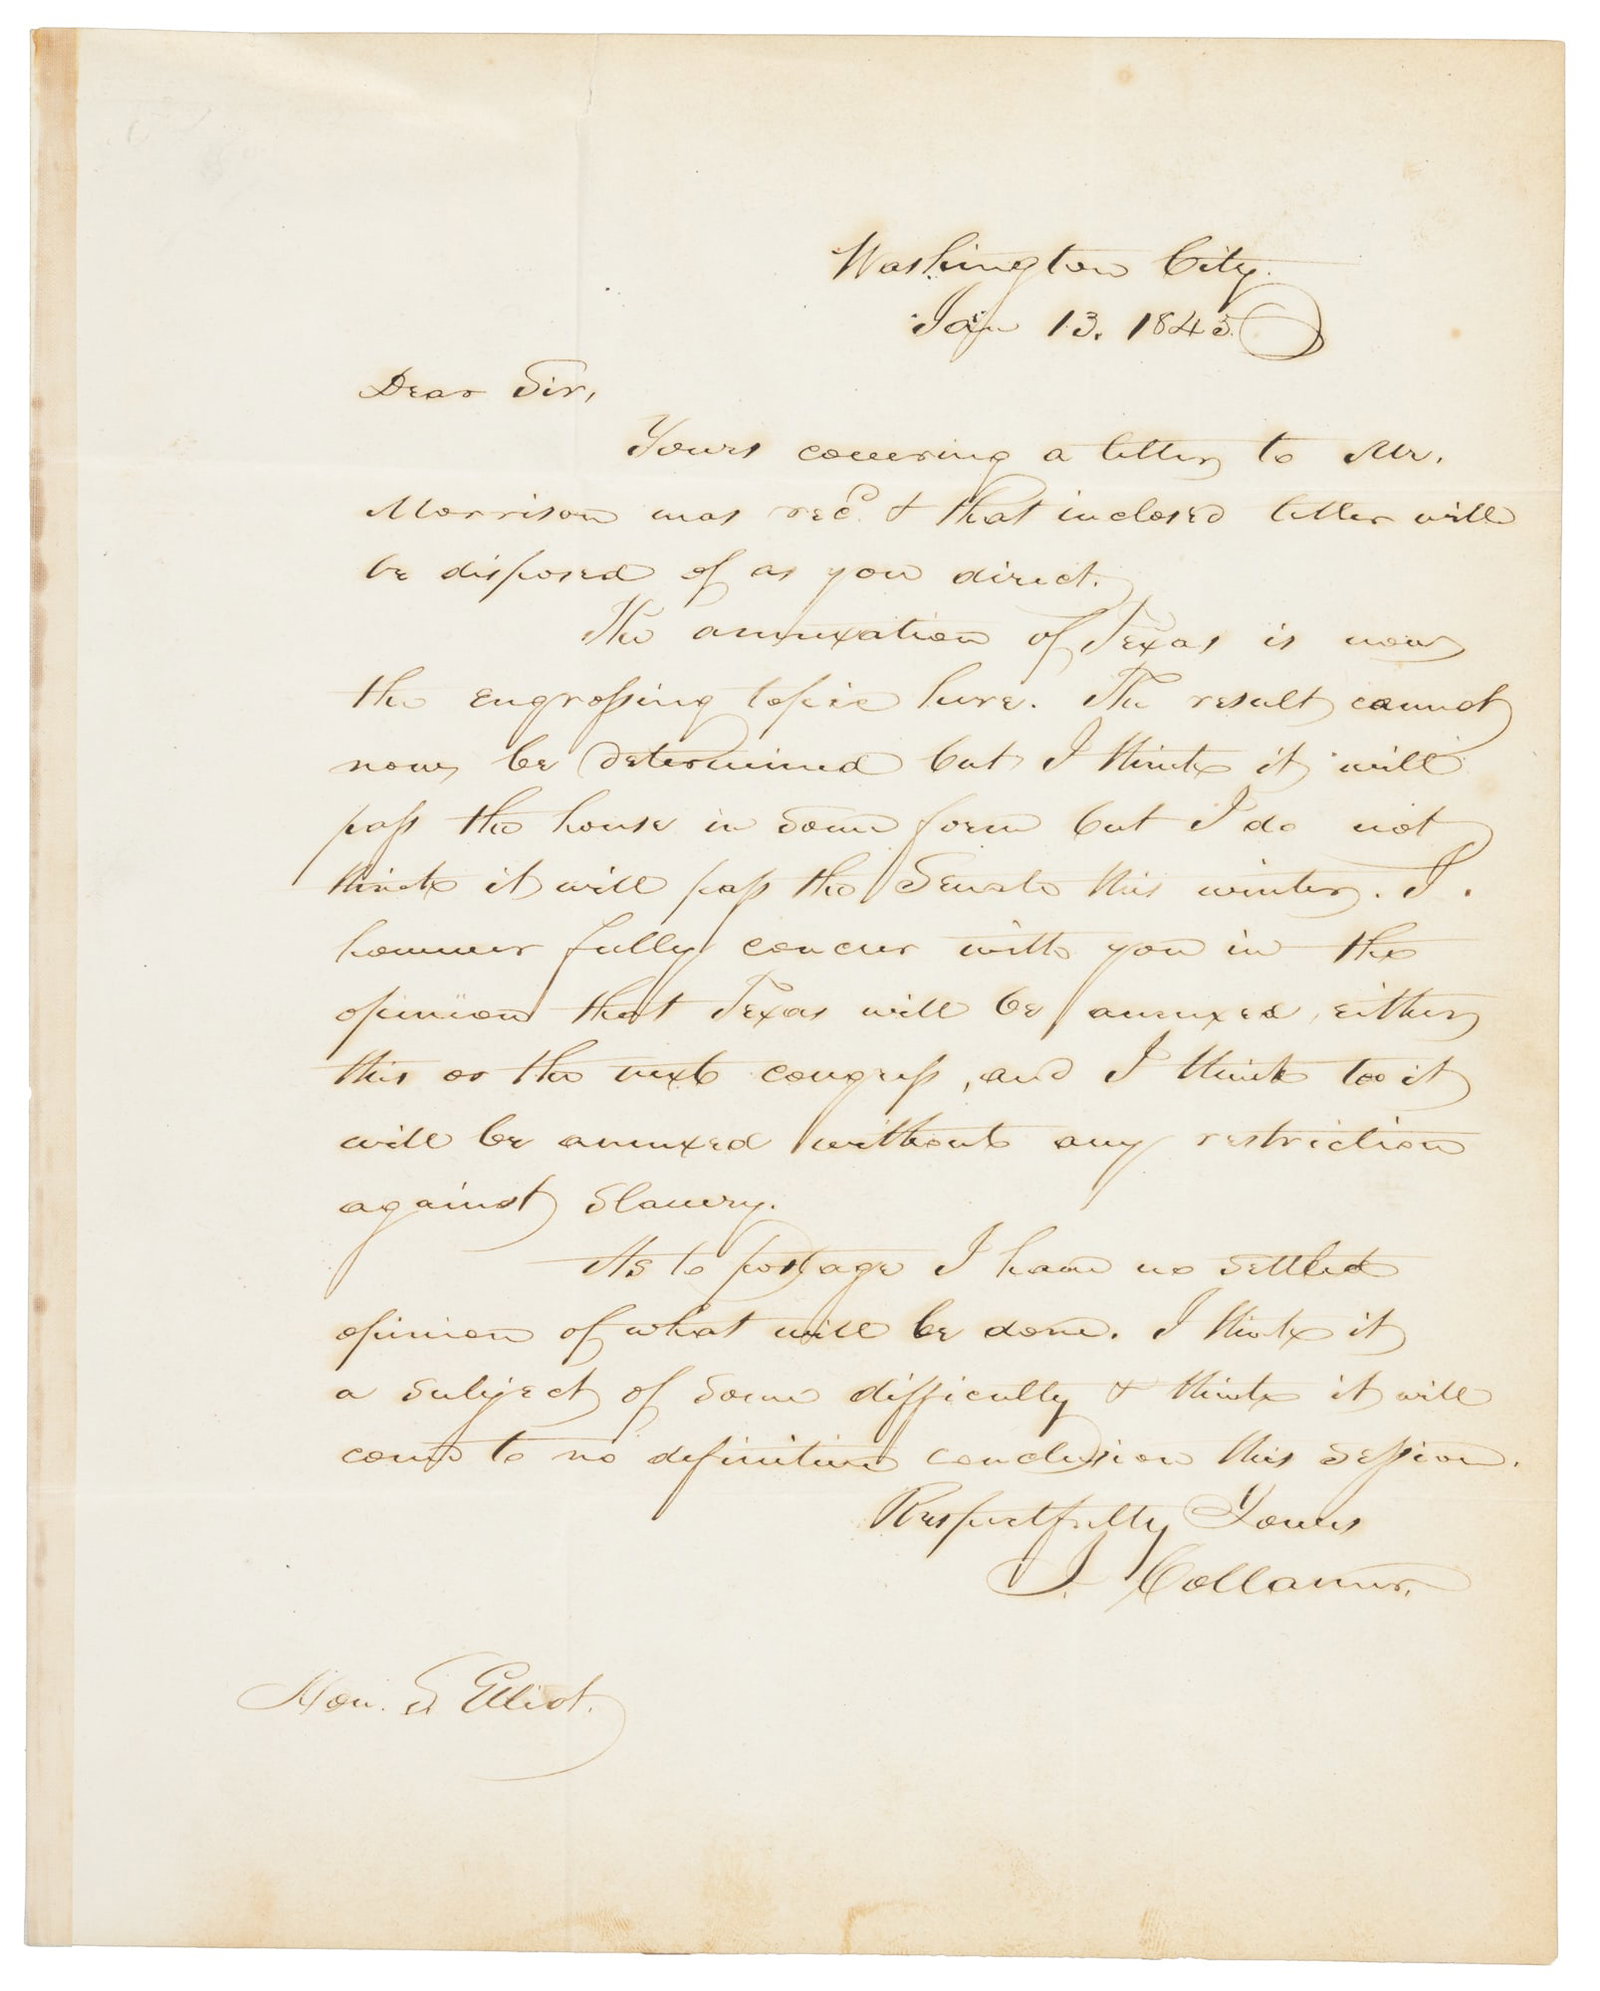 Washington City.
Jan 13. 1845
Dear Sir,
Yours covering a letter to Mr.
Morrison was recd. & that inclosed letter will
be disposed of as you direct.
The annexation of Texas is now
the engrossing topic here. The result cannot
now be determined but I think it will
pass the house in some form but I do not
think it will pass the Senate this winter. I.
however fully concur with you in the
opinion that Texas will be annexed, either
this or the next congress, and I think too it
will be annexed without any restriction
against Slavery.
As to postage I have no settled
opinion of what will be done. I think it
a subject of some difficulty & think it will
come to no definitive conclusion this session.
Respectfully Yours
J. Collamer.
Hon. S Elliot.